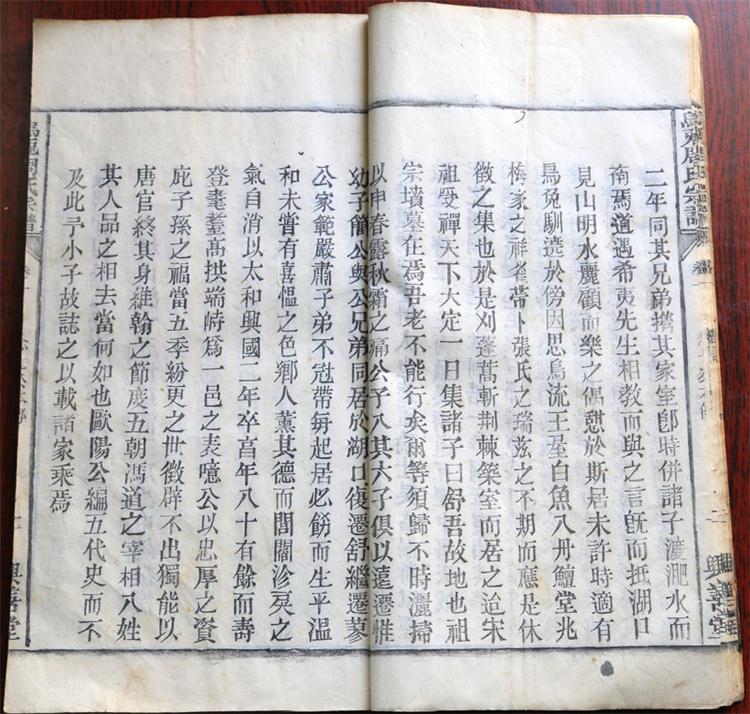 二年同其兄弟携其家室卽時併諸子渡淝水而
南焉道遇希夷先生相教而與之言旣而抵湖口
見山明水麗顧而樂之偶憇於斯居未許時適有
烏兔馴遶於傍因思烏流王屋白魚入舟鱣堂兆
梅家之祥雀帶卜張氏之瑞茲之不期而應是休
徴之集也於是刈蓬蒿斬荆棘築室而居之迨宋
祖受禪天下大定一日集諸子曰舒吾故地也祖
宗墳墓在焉吾老不能行矣爾等須歸不時灑掃
以申春露秋霜之痛公子八其六子俱以遠遷惟
幼子節公與公兄弟同居於湖口復遷舒繼遷蓼
公家範嚴肅子弟不冠帶毎起居必飭而生平溫
和未嘗有喜愠之色鄉人薰其德而閭閻沴戾之
氣自消以太和興國二年卒享年八十有餘而壽
登耄耋高拱端峙爲一邑之表噫公以忠厚之資
庇子孫之福當五季紛更之世徴辟不出獨能以
唐官終其身維翰之節度五朝馮道之宰相八姓
其人品之相去當何如也歐陽公編五代史而不
及此予小子故誌之以載諸家乘焉
氏宗譜
卷一
興善堂